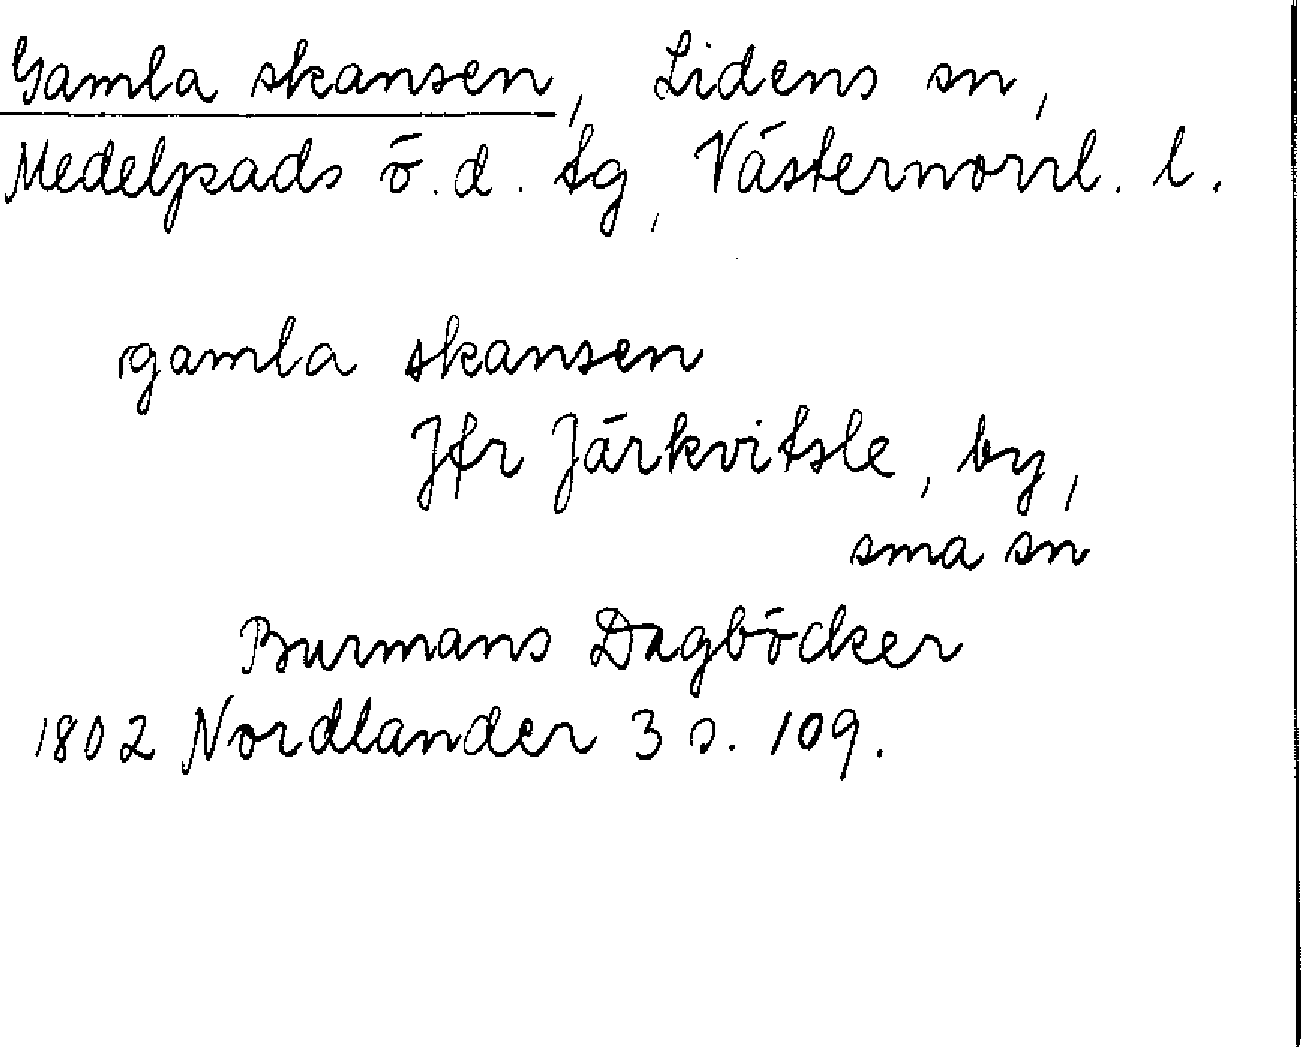 Gamla skansen, Lidens sn,
Medelpads ö. d. tg, Västernorrl. l.
gamla skansen
Jfr Järkvitsle, by,
sma sn
Burmans Dagböcker
1802 Nordlander 3 s. 109.